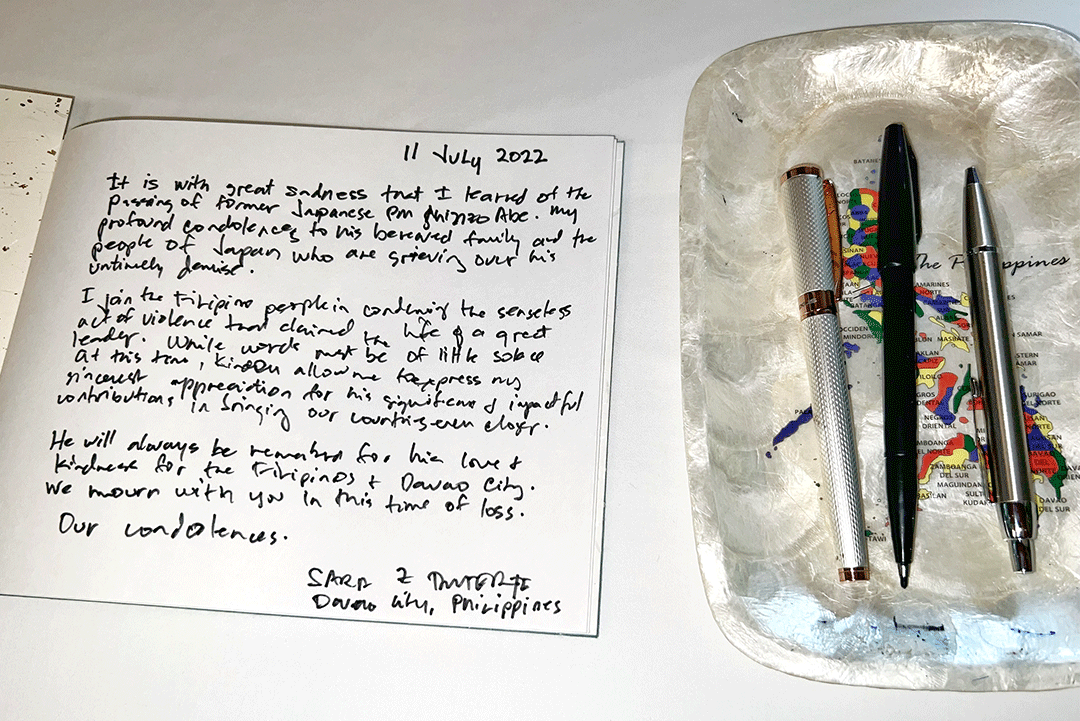 11 July 2022
It is with great sadness that I learned of the
passing of former Japanese PM Shinzo Abe. My
profound condolences to his bereaved family and the
people of Japan who are grieving over his
untimely demise.
I join the Filipino people in condemning the senseless
act of violence that claimed the life of a great
leader. While words must be of little solace
at this time, kindly allow me to express my
sincerest appreciation for his significant & impactful
contributions in bringing our countries even closer.
He will always be remembered for his love &
kindness for the Filipinos & Davao City.
We mourn with you in this time of loss.
Our condolences.
SARA Z DUTERTE
Davao City, Philippines
BATANES
The Philippines
NORTE
MASBATE
SAMAR
MINDORO
ILOILO
NEGROS
ORIENTAL
ZAMBOANGA
DEL SUR
DAVAO
DEL SUR